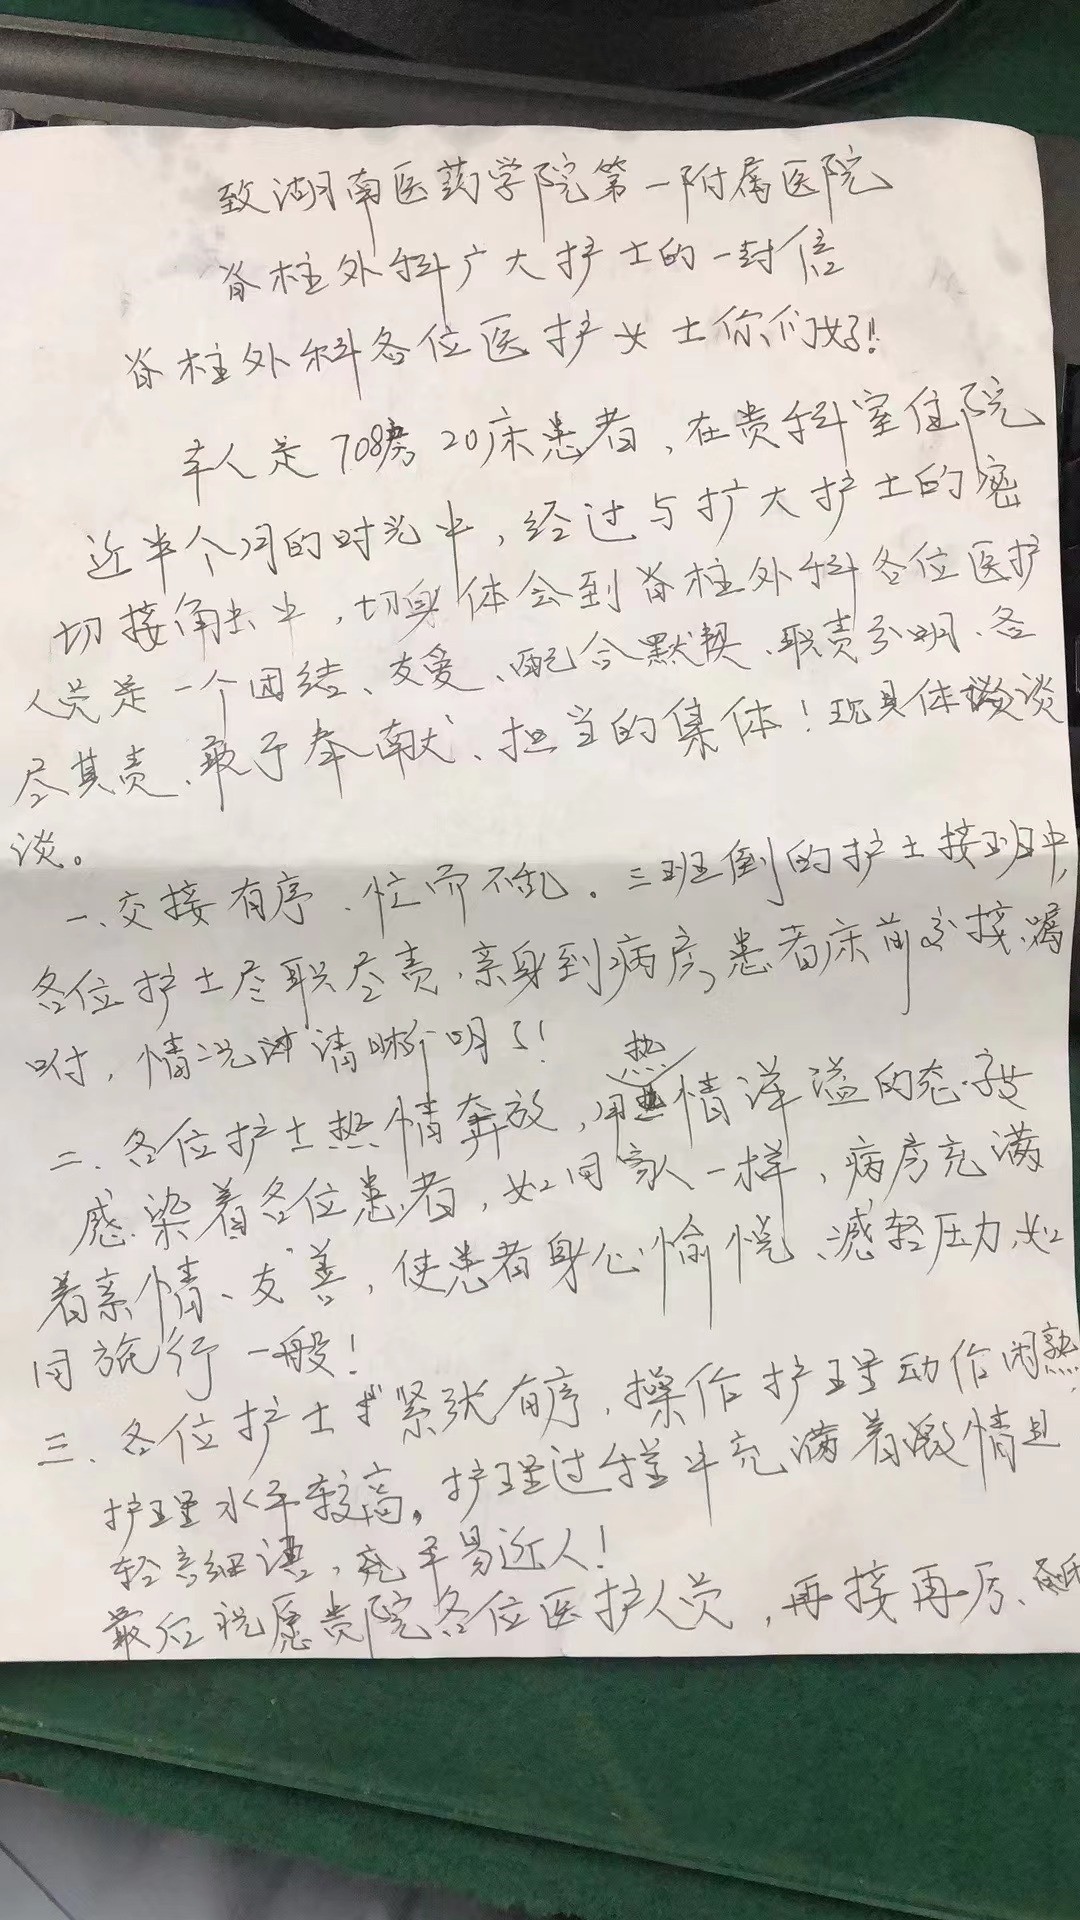 致湖南医药学院第一附属医院
脊柱外科广大护士的一封信
脊柱外科各位医护女士你们好!
本人是708房20床患者,在贵科室住院
近半个月的时光中,经过与扩大护士的密
切接触中,切身体会到脊柱外科各位医护
人员是一个团结、友爱、配合默契、职责分明、各
尽其责、敢于奉献、担当的集体!现具体谈谈
谈。
一、交接有序、忙而不乱。三班倒的护士接班中,
各位护士尽职尽责,亲身到病房,患者床前交接、嘱
咐,情况清晰明了!
二、各位护士热情奔放,用热情洋溢的态度
感染着各位患者,如同家人一样,病房充满
着亲情、友善,使患者身心愉悦、减轻压力,如
同旅行一般!
三、各位护士紧张有序,操作护理动作闲熟,
护理水平较高,护理过程中充满着激情且
轻言细语,平易近人!
最后祝愿贵院各位医护人员,再接再厉、